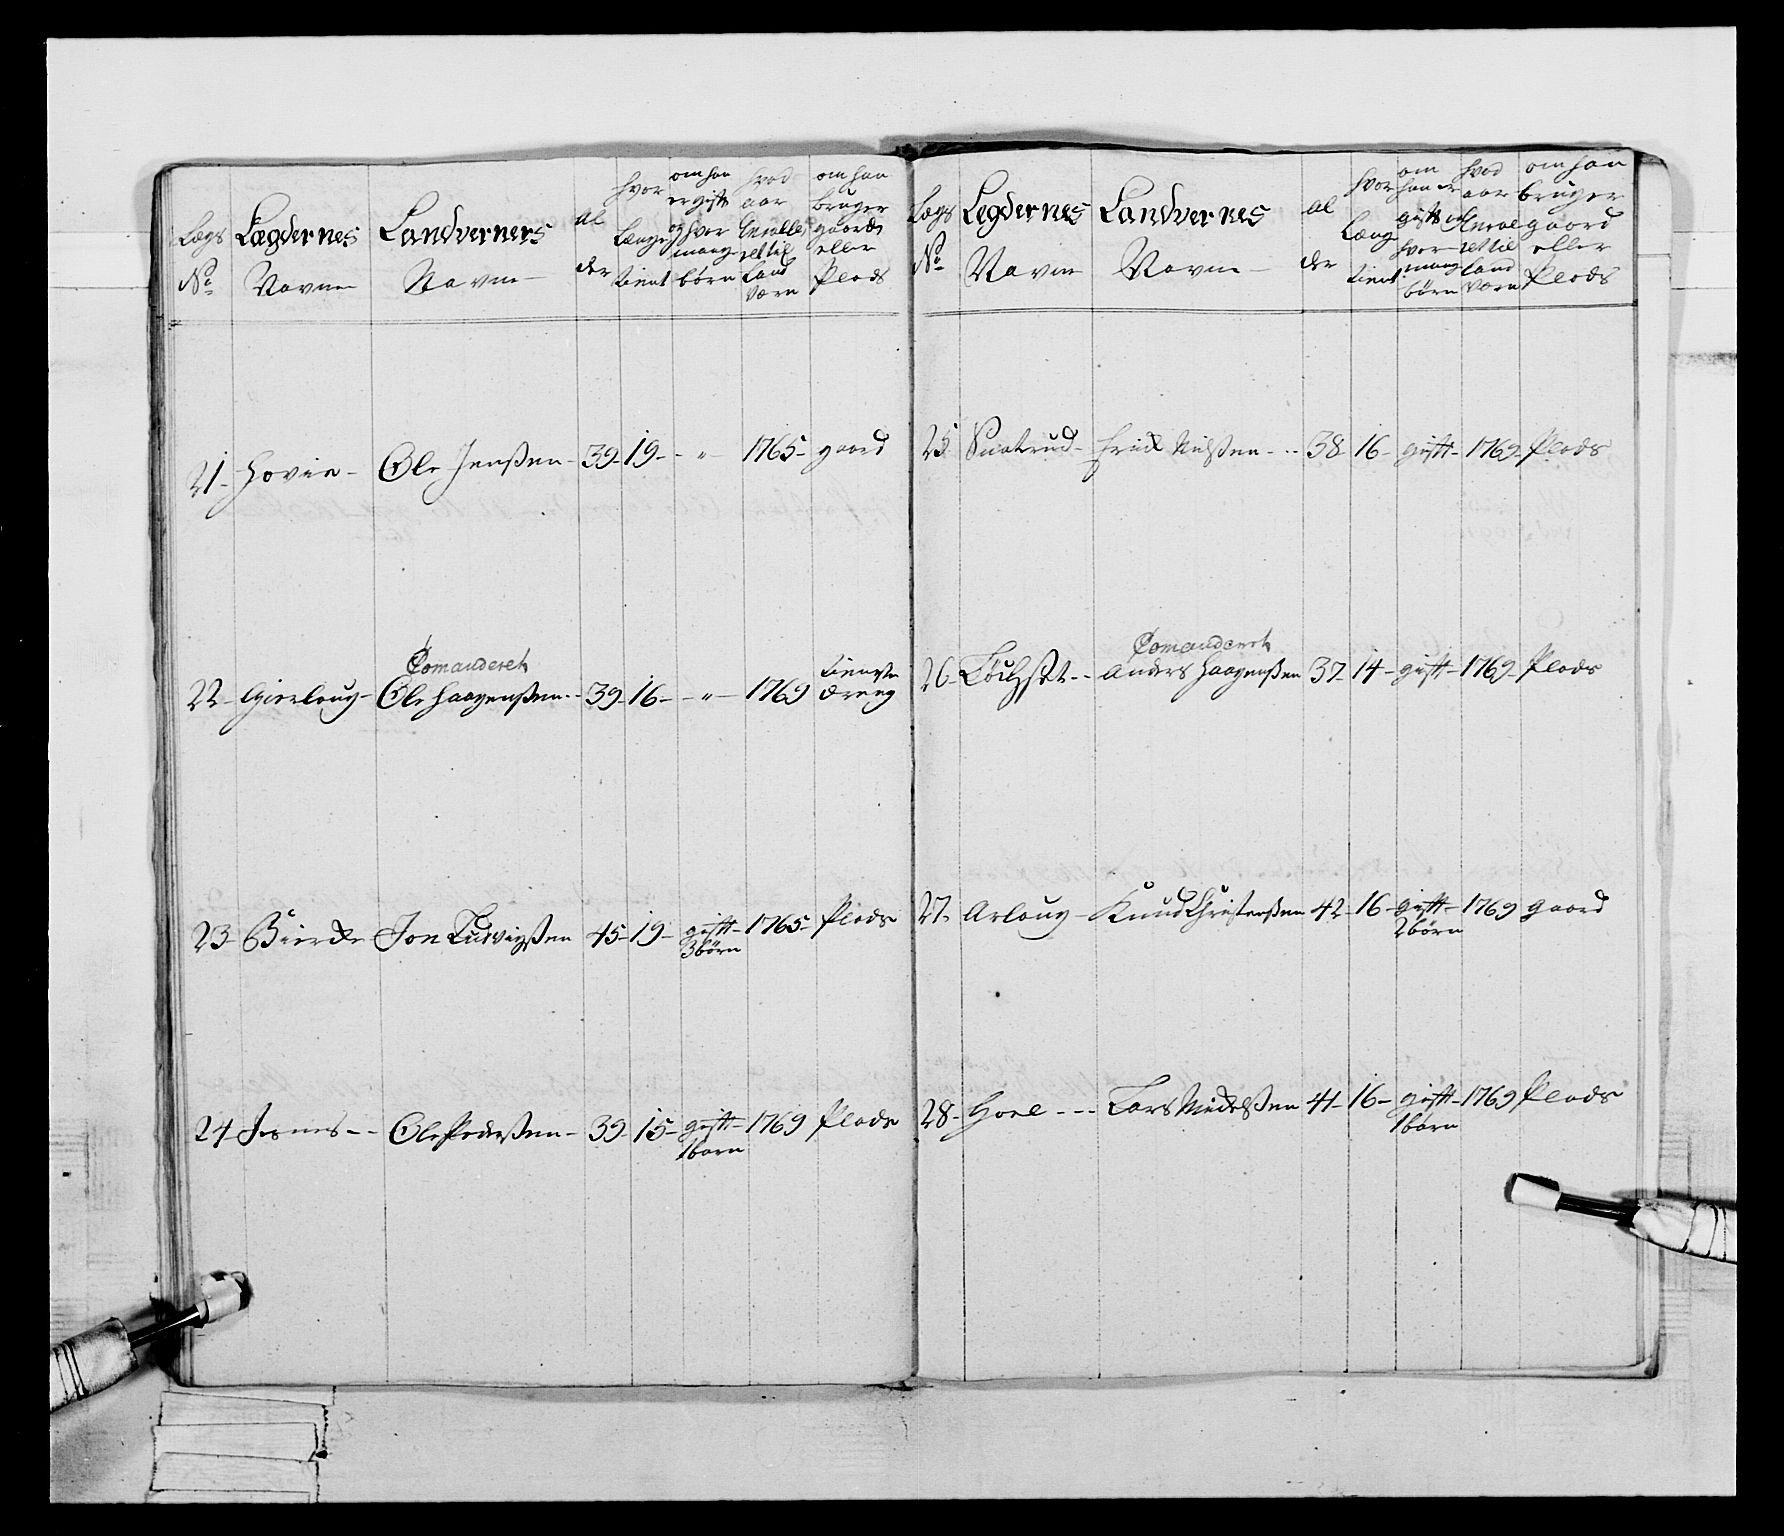 Lægs No Lægdernes Navne Landverners Navne Alder hvor Længe tient om han er gift og hvor mang børn hvad aar Enrollert til Land Værn om han bruger gaard eller Plads
21 - Hovin - Ole Jenßen - 39 - 19 - " - 1765 - gaard
Comanderet
22 - Gierloug - Ole Haagenßen - 39 - 16 - " - 1769 tieneste dreng
23 - Bierke Jon Ludvigßen 45 - 19 - gift - 3 børn 1765 - Plads
24 - Ole Pederßen - 39 - 15 - gift - 1 barn 1769 Plads
Lægs No Legdernes Navne Landvernes Navne Alder hvor Læng tient om han er gift og hvor mang børn hvad aar til Land Værn om han bruger gaard eller Plads
25 Erick Nilßen - 38 - 16 - gift - 1769 - Plads
Comanderet
26 - Anders Haagenßen 37 - 14 - gift - 1769 - Plads
27 - Arloug - Knud Christenßen 42 - 16 - gift - 2 børn 1769 gaard
28 - Hoel - - - Lars Mickelßen 41 - 16 - gift - 1 barn 1769 Plads